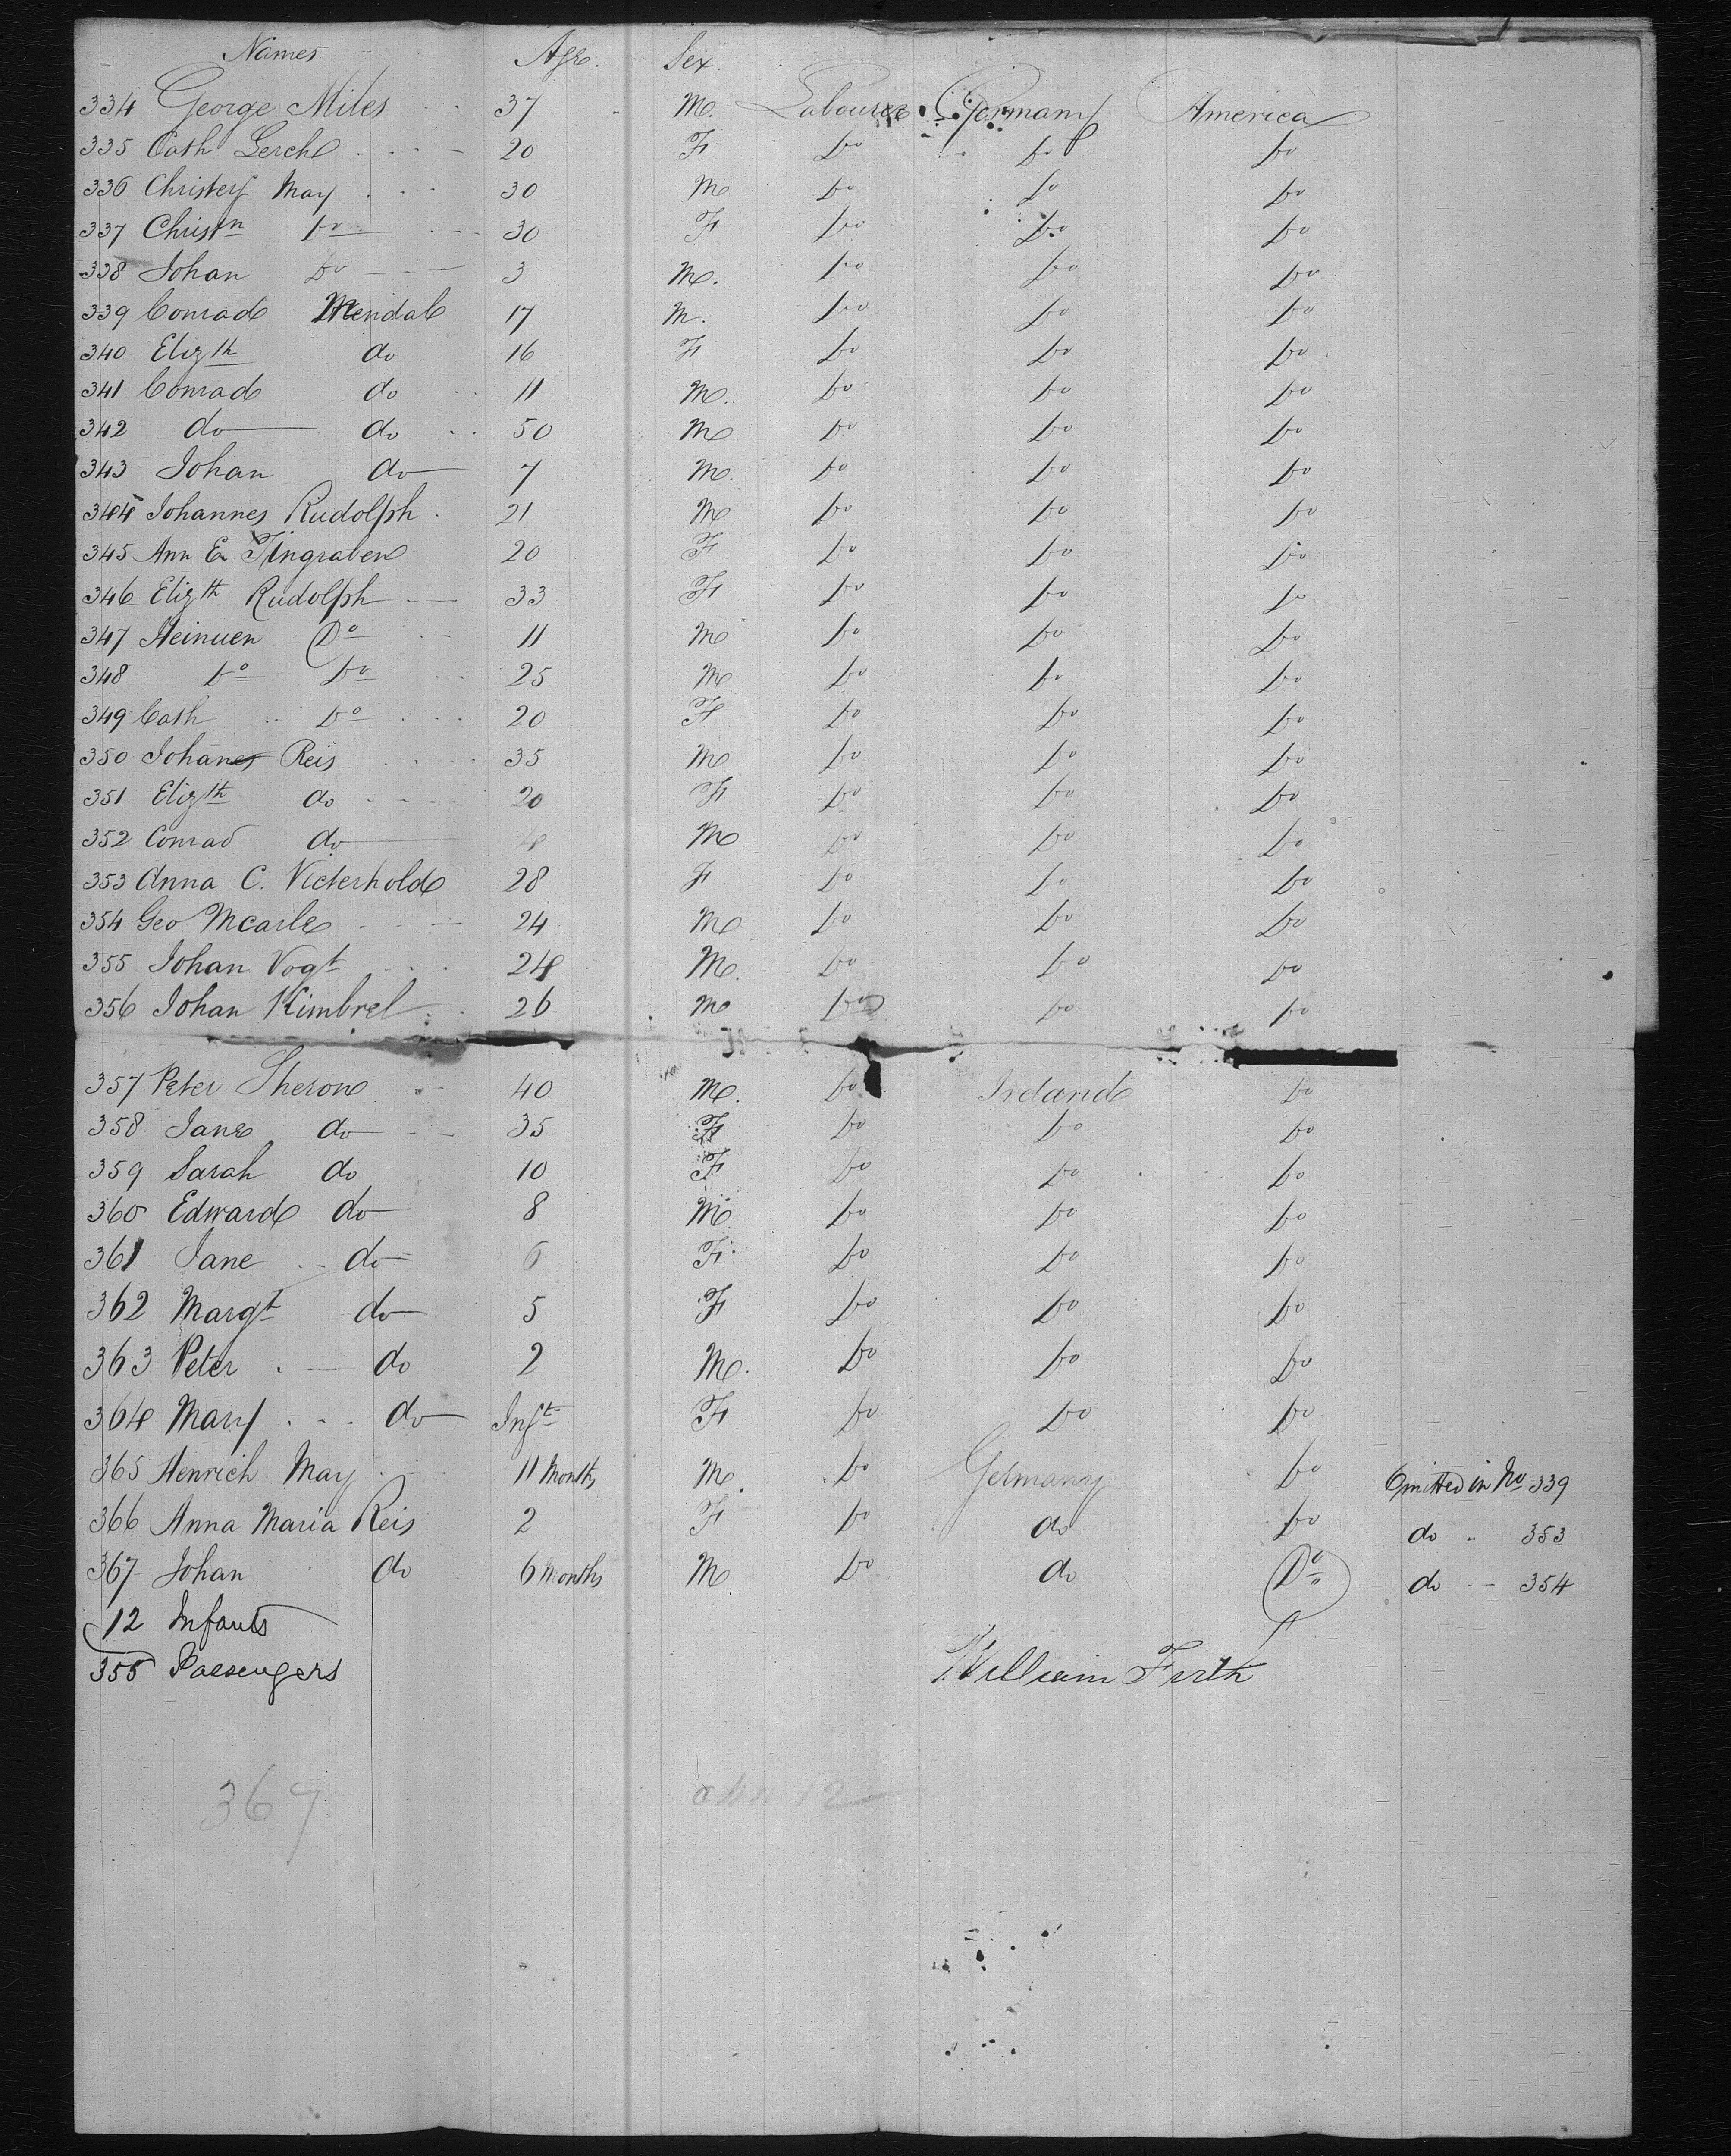 Names Age. Sex.
334 George Miles 37 M. Labourer Germany America
335 Cath Lerch 20 F Do Do Do
336 Christery May 30 M Do Do Do
337 Christn Do 30 F Do Do Do
338 Johan Do 3 M. Do Do Do
339 Conrad Mendal 17 M. Do Do Do
340 Elizth do 16 F Do Do Do
341 Conrad do 11 M. Do Do Do
342 do do 50 M Do Do Do
343 Johan do 7 M. Do Do Do
344 Johannes Rudolph 21 M Do Do Do
345 Ann E Tingraben 20 F Do Do Do
346 Elizth Rudolph 33 F Do Do Do
347 Heinuen Do 11 M Do Do Do
348 Do Do 25 M Do Do Do
349 Cath Do 20 F Do Do Do
350 Johanes Reis 35 M Do Do Do
351 Elizth do 20 F Do Do Do
352 Conrad do M Do Do Do
353 Anna C. Victerhold 28 F Do Do Do
354 Geo Mcarle 24 M Do Do Do
355 Johan Vogt 24 M. Do Do Do
356 Johan Kimbrel 26 M Do Do Do
357 Peter Sheron 40 M. Do Ireland Do
358 Jane do 35 F Do Do Do
359 Sarah do 10 F Do Do Do
360 Edward do 8 M Do Do Do
361 Jane do 6 F Do Do Do
362 Margt do 5 F Do Do Do
363 Peter do 2 M. Do Do Do
364 Mary do Inft F Do Do Do
365 Henrich May 11 Months M. Do Germany Do Omitted in No 339
366 Anna Maria Reis 2 F Do do Do do " 353
367 Johan do 6 Months M. Do do Do do 354
12 Infants
355 Passengers William Firth
367 12